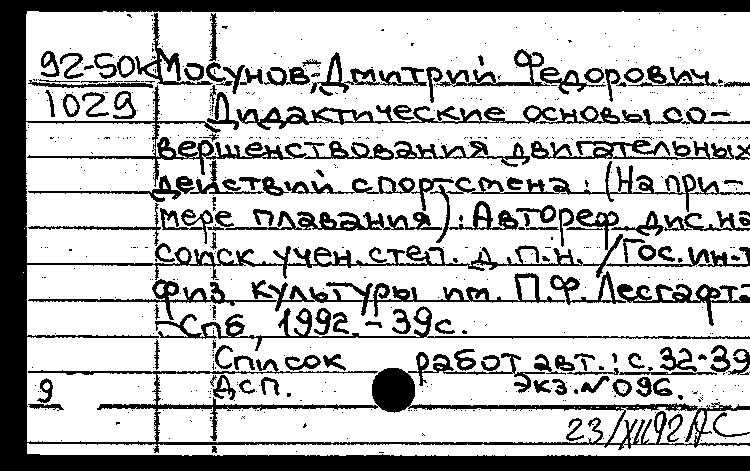 92-50К Мосунов, Дмитрий Федорович.
1029 Дидактические основы со-
вершенствования двигательных
действий спортсмена: (На при-
мере плавания): Автореф. дис. на
соиск. учен. степ. д.п.н. / Гос. ин-т
физ. культуры им. П.Ф. Лесгафта
-Спб., 1992. - 39с.
Список работ авт.: с. 32-39
9 Дсп. Экз. № 096.
23/XII92